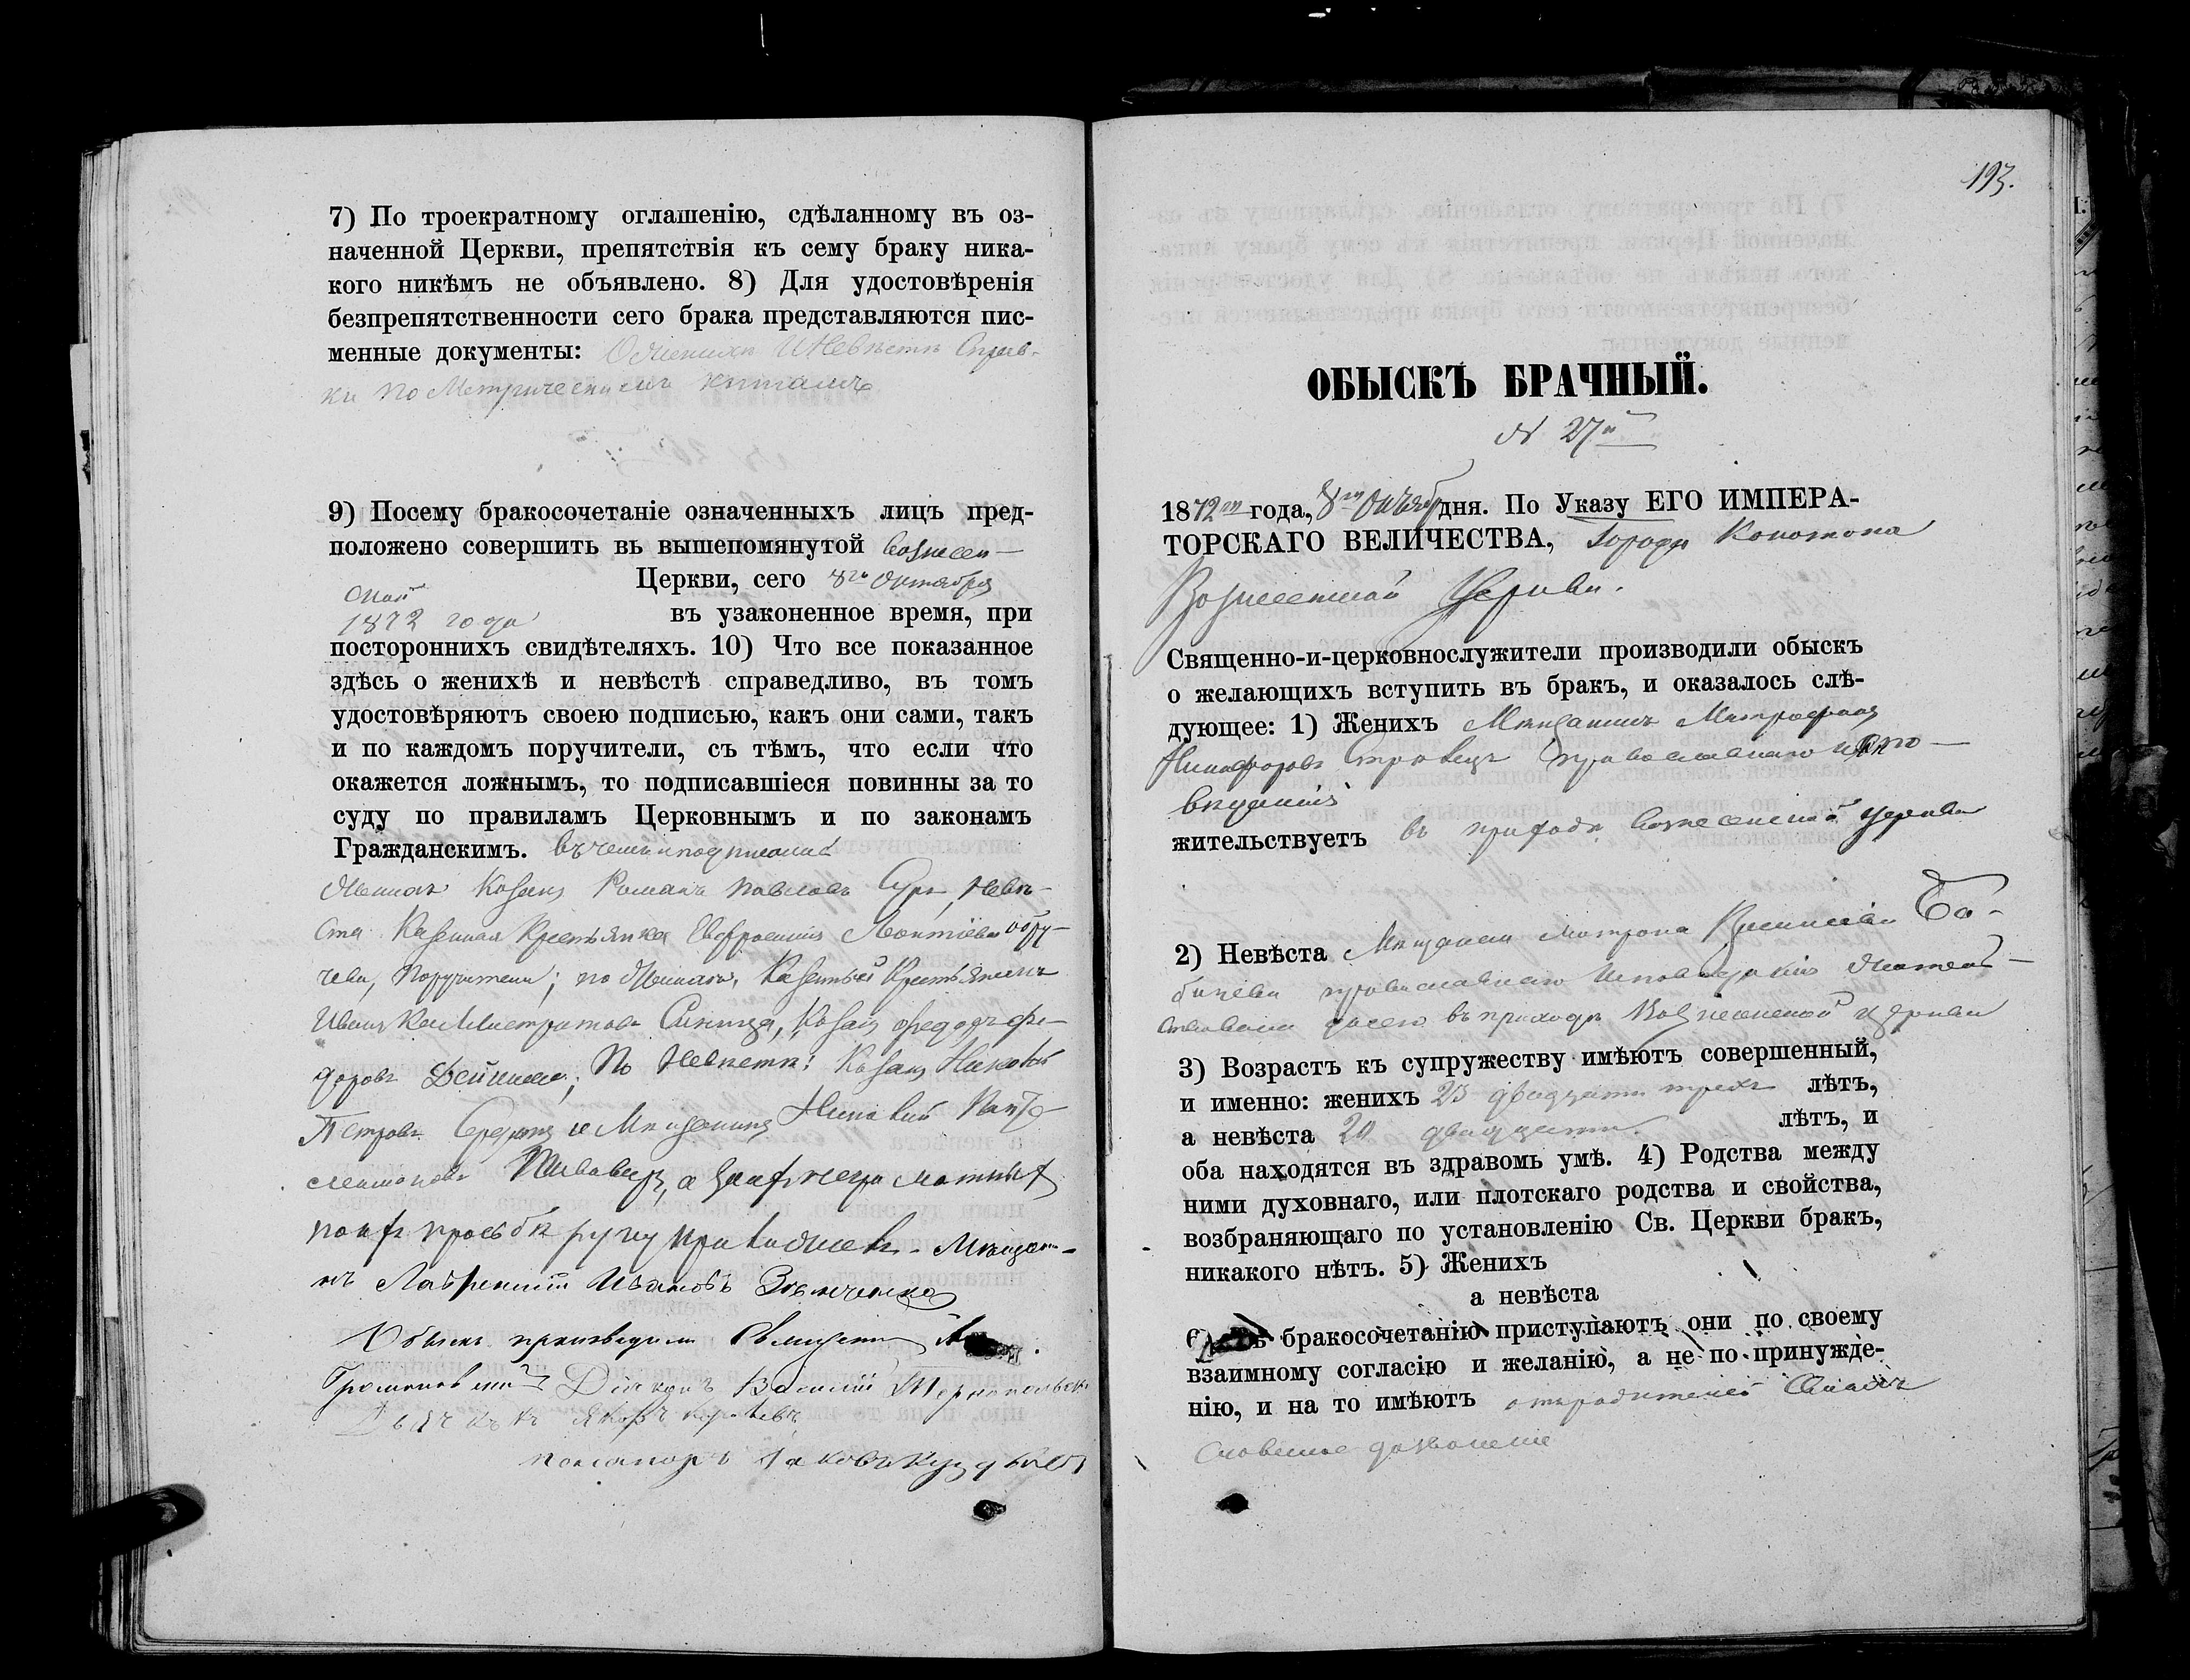 7) По троекратному оглашенію, сдѣланному въ оз-
наченной Церкви, препятствія къ сему браку ника-
кого никѣмъ не объявлено. 8) Для удостовѣренія
безпрепятственности сего брака представляются пис-
менные документы: О женихѣ и Невѣстѣ Справ-
ки по Метрическимъ книгамъ
9) Посему бракосочетаніе означенныхъ лицъ пред-
положено совершить въ вышепомянутой Вознесен-
ской Церкви, сего 8го Октября
1872 года въ узаконенное время, при
постороннихъ свидѣтеляхъ. 10) Что все показанное
здѣсь о женихѣ и невѣстѣ справедливо, въ томъ
удостовѣряютъ своею подписью, какъ они сами, такъ
и по каждомъ поручители, съ тѣмъ, что если что
окажется ложнымъ, то подписавшіеся повинны за то
суду по правиламъ Церковнымъ и по законамъ
Гражданскимъ. въ чемъ и
Женихъ Козакъ Романъ Павловъ Невѣ-
ста Казенная Крестьянка Евфросинія Леонтіева
Поручители; по Женихѣ, Казенный Крестьянинъ
Иванъ Синица, Козакъ Федоръ Фе-
доровъ Дейнека; По Невѣстѣ: Козакъ
Петровъ Середа и Мещанинъ
Пивоваръ, а за ихъ неграмотныхъ
по ихъ прозьбѣ руку приложилъ Мещани-
нъ Лаврентій Ивановъ Зѣнченко
Обыскъ производили Священникъ
Громаковскій Діаконъ Василій
Дьячекъ
пономарь Іаковъ
193.
ОБЫСКЪ БРАЧНЫЙ.
№ 27й
1872го года, 8го Октябр дня. По Указу ЕГО ИМПЕРА-
ТОРСКАГО ВЕЛИЧЕСТВА, Города Конотопа
Вознесенской Церкви.
Священно-и-церковнослужители производили обыскъ
о желающихъ вступить въ бракъ, и оказалось слѣ-
дующее: 1) Женихъ Мещанинъ Митрофанъ
Никифоровъ православнаго испо-
вѣданія
жительствуетъ въ приходѣ Вознесенской церкви
2) Невѣста Мещанка Матрона Ба-
бичева православнаго исповѣданія жительс-
твовала досего въ приходѣ Вознесенской церкви
3) Возрастъ къ супружеству имѣютъ совершенный,
и именно: женихъ 23 двадцати трехъ лѣтъ,
а невѣста 20 двадцати. лѣтъ, и
оба находятся въ здравомъ умѣ. 4) Родства между
ними духовнаго, или плотскаго родства и свойства,
возбраняющаго по установленію Св. Церкви бракъ,
никакого нѣтъ. 5) Женихъ
а невѣста
6) Къ бракосочетанію приступаютъ они по своему
взаимному согласію и желанію, а не по принужде-
нію, и на то имѣютъ отъ родителей своихъ
словесное дозволеніе